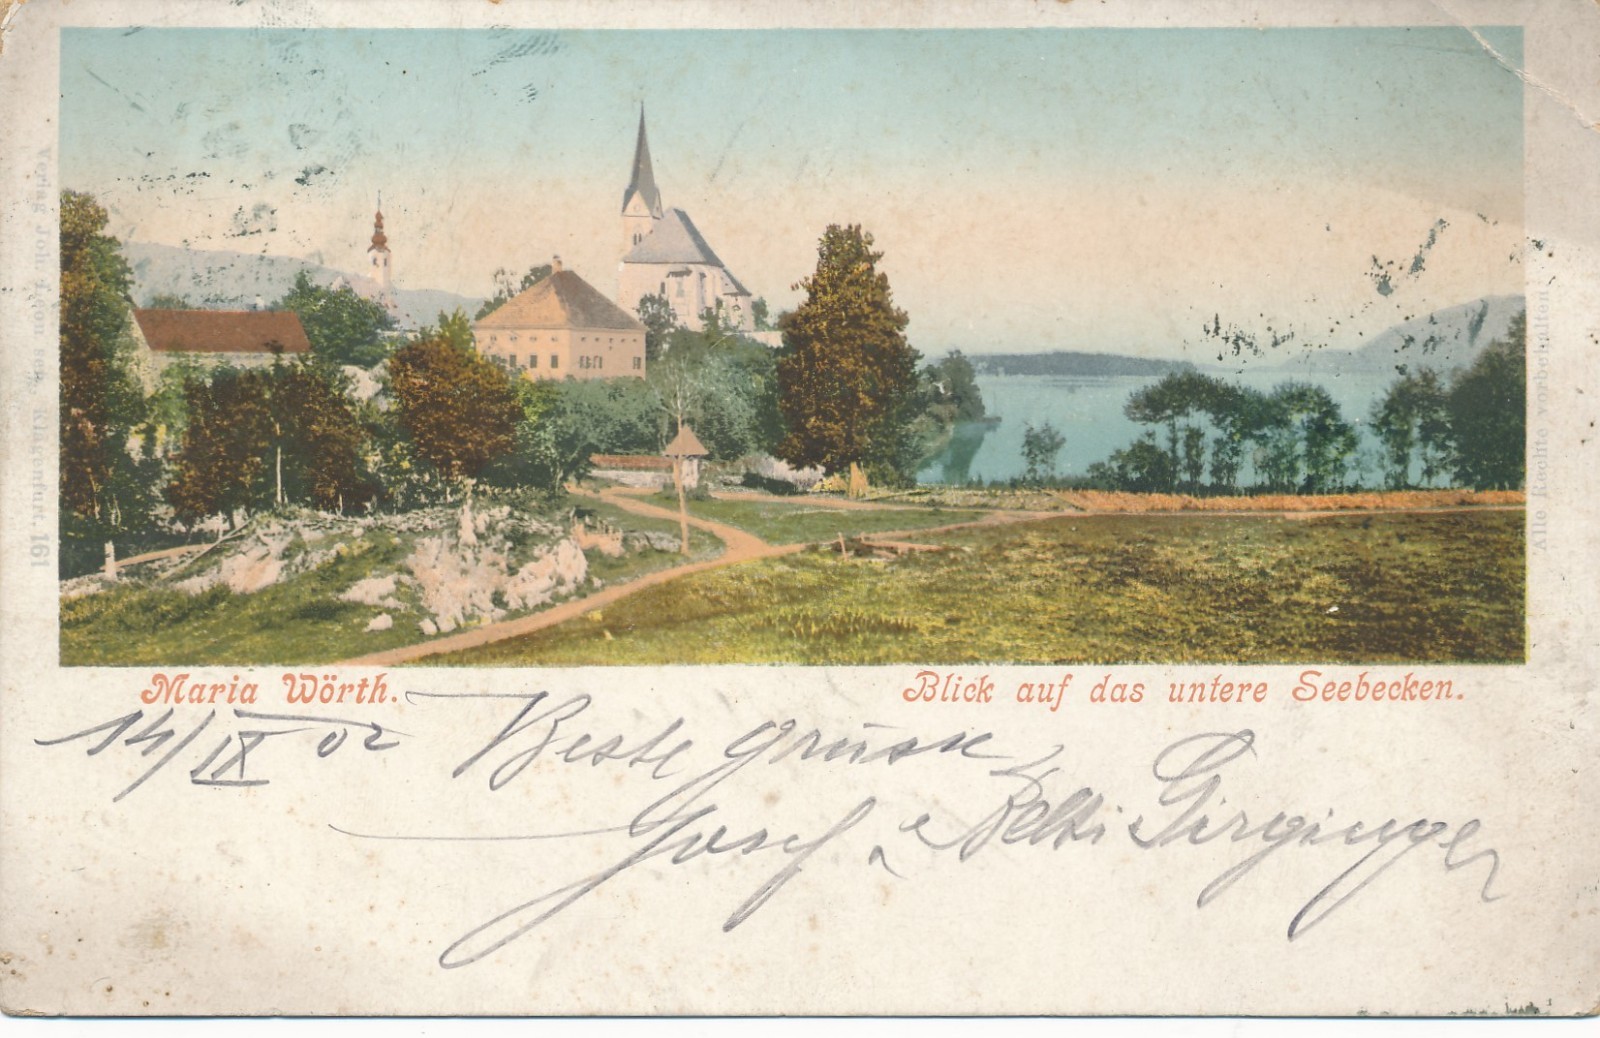 Verlag Joh. Leon sen., Klagenfurt. 161
Alle Rechte vorbehalten
Maria Wörth.
Blick auf das untere Seebecken.
14/IX 02 Beste Grüsse
Josef